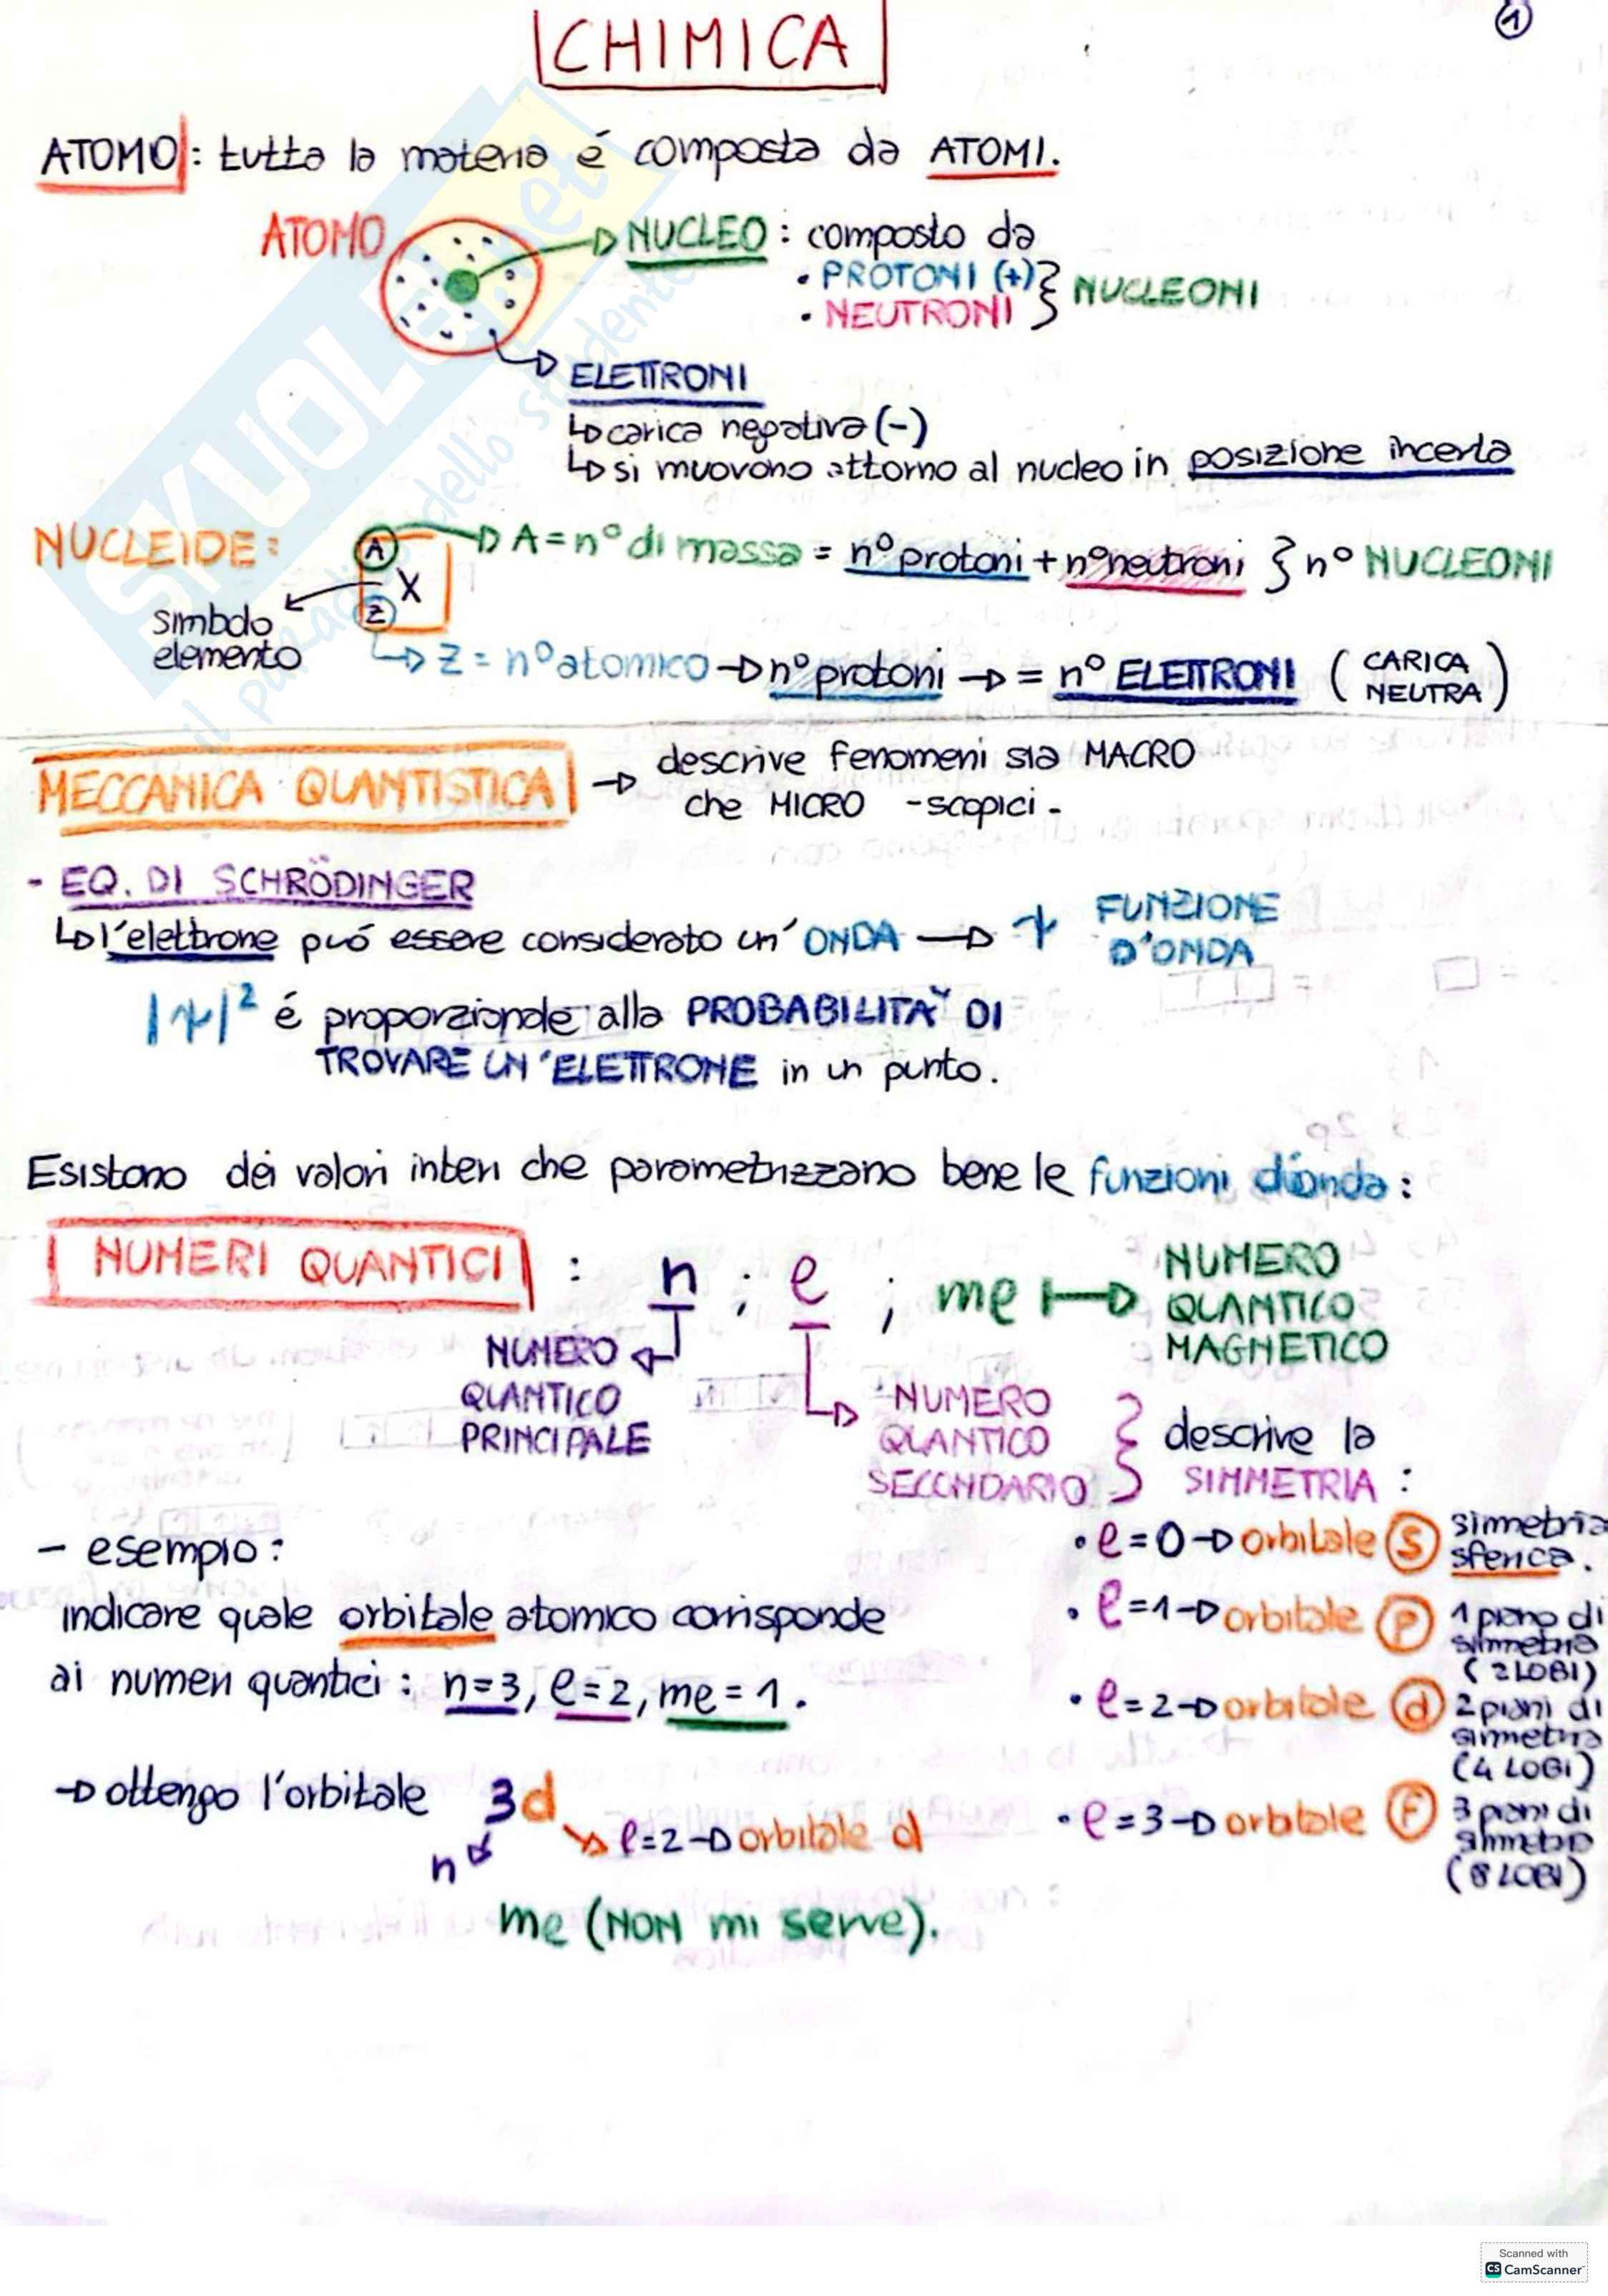 1
CHIMICA
ATOMO: tutta la materia é composta da ATOMI.
ATOMO
NUCLEO: composto da
• PROTONI (+)
• NEUTRONI
} NUCLEONI
ELETTRONI
carica negativa (-)
si muovono attorno al nucleo in posizione incerta
NUCLEIDE:
A
X
Z
A = n° di massa = n° protoni + n° neutroni } n° NUCLEONI
simbolo
elemento
Z = n° atomico → n° protoni → = n° ELETTRONI (CARICA NEUTRA)
MECCANICA QUANTISTICA → descrive fenomeni sia MACRO
che MICRO -scopici-
- EQ. DI SCHRÖDINGER
l'elettrone può essere considerato un' ONDA → ψ FUNZIONE
D'ONDA
|ψ|² é proporzionale alla PROBABILITA' DI
TROVARE UN'ELETTRONE in un punto.
Esistono dei valori interi che parametrizzano bene le funzioni d'onda:
NUMERI QUANTICI : n ; l ; ml → NUMERO
QUANTICO
MAGNETICO
NUMERO
QUANTICO
PRINCIPALE
NUMERO
QUANTICO
SECONDARIO
} descrive la
SIMMETRIA :
• l=0 → orbitale S simmetria
sferica.
• l=1 → orbitale P 1 piano di
simmetria
(2 LOBI)
• l=2 → orbitale d 2 piani di
simmetria
(4 LOBI)
• l=3 → orbitale F 3 piani di
simmetria
(8 LOBI)
- esempio:
indicare quale orbitale atomico corrisponde
ai numeri quantici: n=3, l=2, ml=1.
→ ottengo l'orbitale 3d
n
l=2 → orbitale d
ml (NON mi serve).
SKUOLA.net
il paradiso dello studente
Scanned with
CS CamScanner